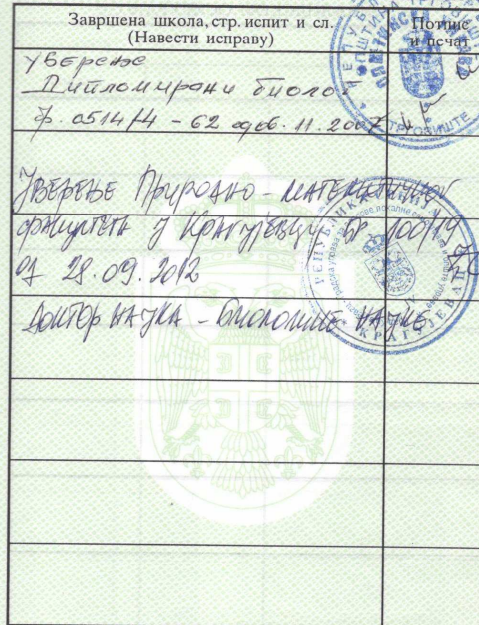 Завршена школа, стр. испит и сл.
(Навести исправу)
Потпис
и печат
Уверење
Дипломирани биолог
0514/4 - 62 11. 2007
ТРГОВИШТЕ
Уверење Природно - математичког
факултета у Крагујевцу бр 100/19
од 28.09.2012
Доктор наука - биолошке науке
РЕПУБЛИКА СРБИЈА
КРАГУЈЕВАЦ